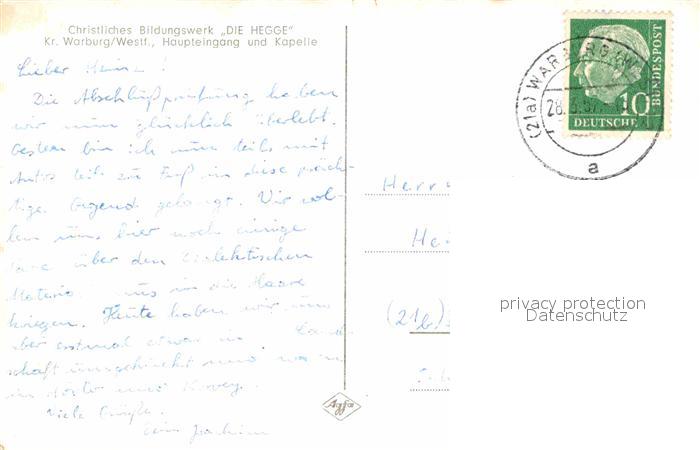 Christliches Bildungswerk „DIE HEGGE"
Kr. Warburg/Westf., Haupteingang und Kapelle
Lieber Heinz!
Die Abschlußprüfung haben
wir nun glücklich überlebt.
Gestern bin ich nun teils mit
Autos teils zu Fuß in diese präch-
tige Gegend gelangt. Wir wol-
len uns hier noch einige
Tage über den
uns in die Haare
kriegen. Heute haben wir uns
aber erstmal etwas in Land-
schaft umgesehen und
in
Viele Grüße
Dein Joachim
Agfa
Herrn
He
(21b)
(21a) WARBURG (W
28.
a
10
DEUTSCHE
BUNDESPOST
privacy protection
Datenschutz